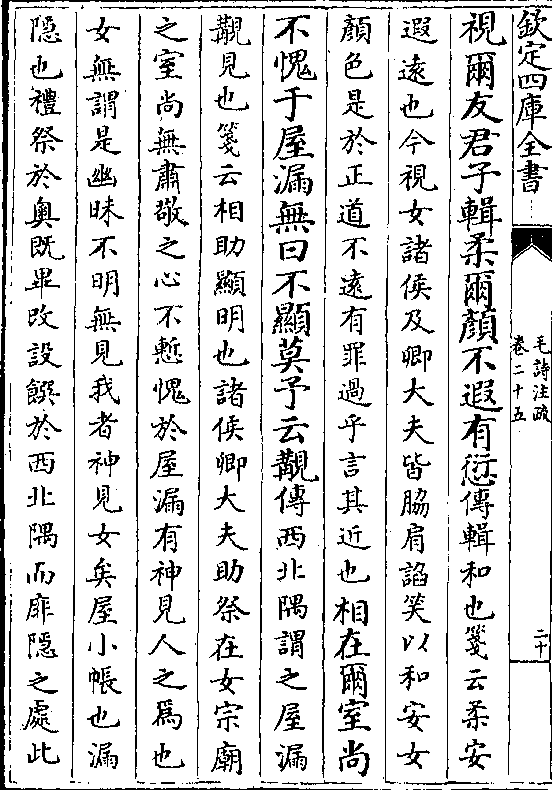 欽定四庫全書
毛詩注疏
卷二十五
二十
視爾友君子輯柔爾顔不遐有愆傳輯和也箋云柔安
遐遠也今視女諸侯及卿大夫皆脇肩諂笑以和安女
顔色是於正道不遠有罪過乎言其近也相在爾室尚
不愧于屋漏無曰不顯莫予云覯傳西北隅謂之屋漏
覯見也箋云相助顯明也諸侯卿大夫助祭在女宗廟
之室尚無肅敬之心不慙愧於屋漏有神見人之爲也
女無謂是幽昧不明無見我者神見女矣屋小帳也漏
隠也禮祭於奥既畢改設饌於西北隅而厞隠之處此